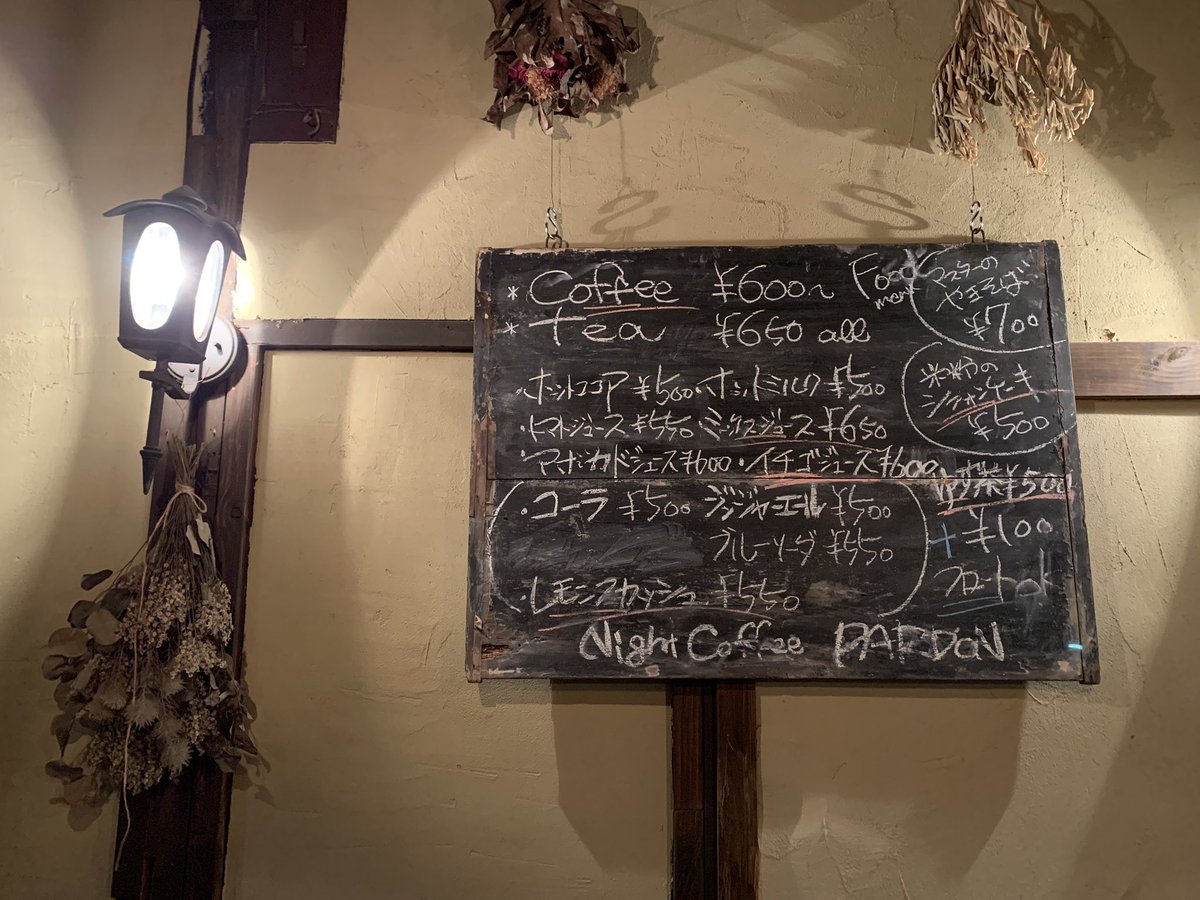 * Coffee ¥600~
* Tea ¥650 all
・ホットココア ¥500 ・ホットミルク ¥500
・トマトジュース ¥550 ミックスジュース ¥650
・アボカドジュース ¥600 ・イチゴジュース ¥600
・コーラ ¥500 ジンジャーエール ¥500
ブルーソーダ ¥550
・レモンスカッシュ ¥550
Food
menu
マスターの
ヤキそば
¥700
米粉の
シフォンケーキ
¥500
¥500
+ ¥100
フロートok
Night Coffee PARDON